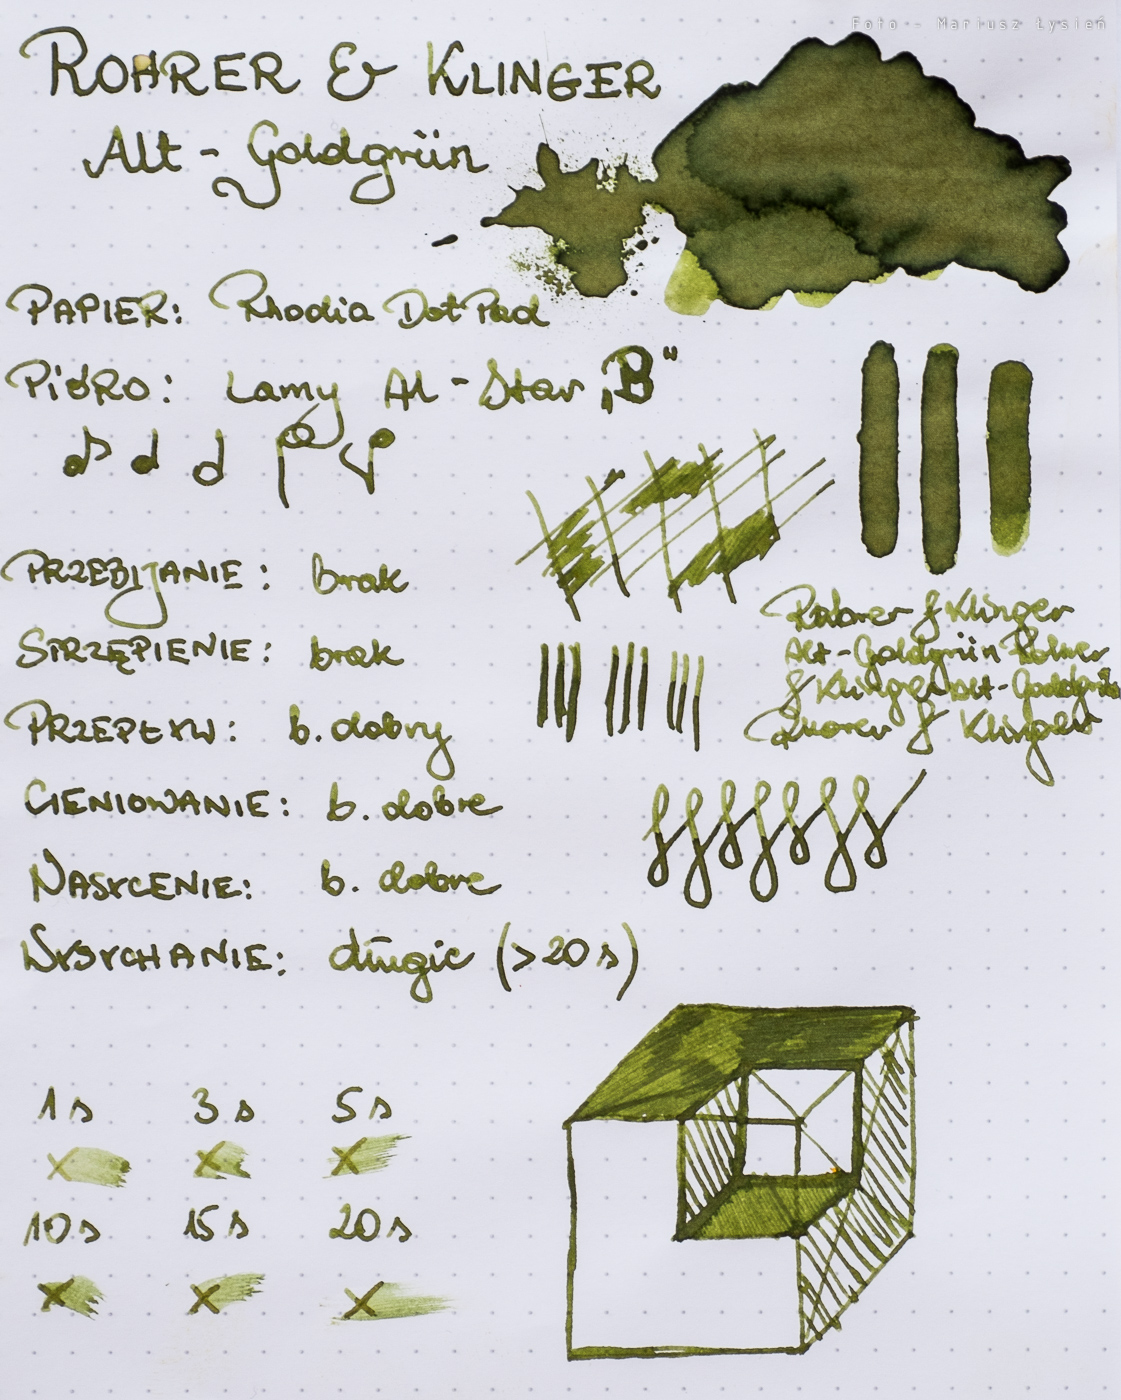 Foto - Mariusz Łysień
ROHRER & KLINGER
Alt - Goldgrün
PAPIER: Rhodia Dot Pad
PióRO: Lamy Al - Star „B"
PRZEBIJANIE: brak
STRZĘPIENIE: brak
PRZEPŁYW: b. dobry
CIENIOWANIE: b. dobre
NASYCENIE: b. dobre
WYSYCHANIE: długie (>20 s)
Rohrer & Klinger
Alt - Goldgrün Rohrer
& Klinger Alt - Goldgrün
Rhorer & Klinger
1 s 3 s 5 s
10 s 15 s 20 s